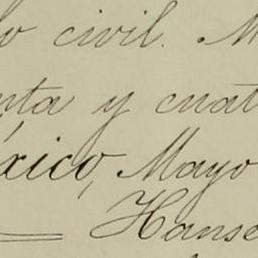 o civil. M
nta y cuat
éxico, Mayo
Hanse